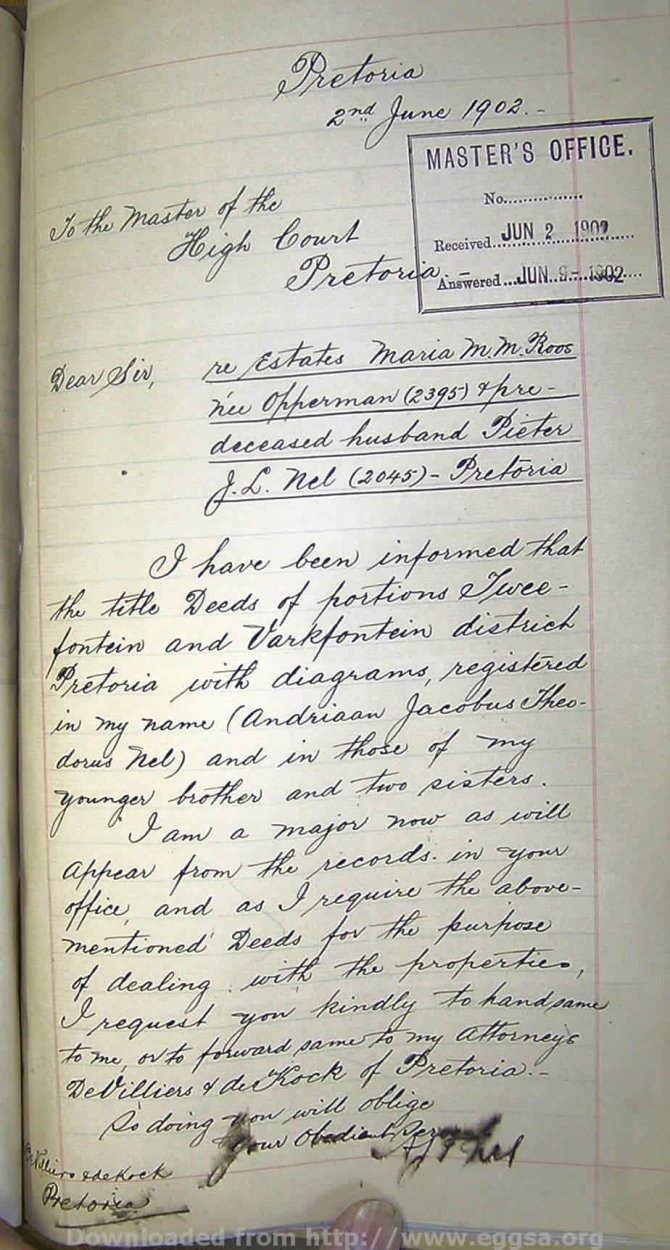 Pretoria
2nd June 1902.-
MASTER'S OFFICE.
No................
Received...JUN 2 1902......
Answered...JUN 9-1902....
To the Master of the
High Court
Pretoria.-
Dear Sir,
re Estates Maria M.M. Roos
née Opperman (2395) & pre-
deceased husband Pieter
J. L. Nel (2045) - Pretoria
I have been informed that
the title Deeds of portions Twee-
fontein and Varkfontein district
Pretoria with diagrams, registered
in my name (Andriaan Jacobus Theo-
dorus Nel) and in those of my
younger brother and two sisters.
I am a major now as will
appear from the records in your
office, and as I require the above-
mentioned Deeds for the purpose
of dealing with the properties,
I request you kindly to hand same
to me, or to forward same to my Attorneys
De Villiers & de Kock of Pretoria.-
So doing you will oblige
Your Obedient
Nel
De Villiers & de Kock
Pretoria
Downloaded from http://www.eggsa.org